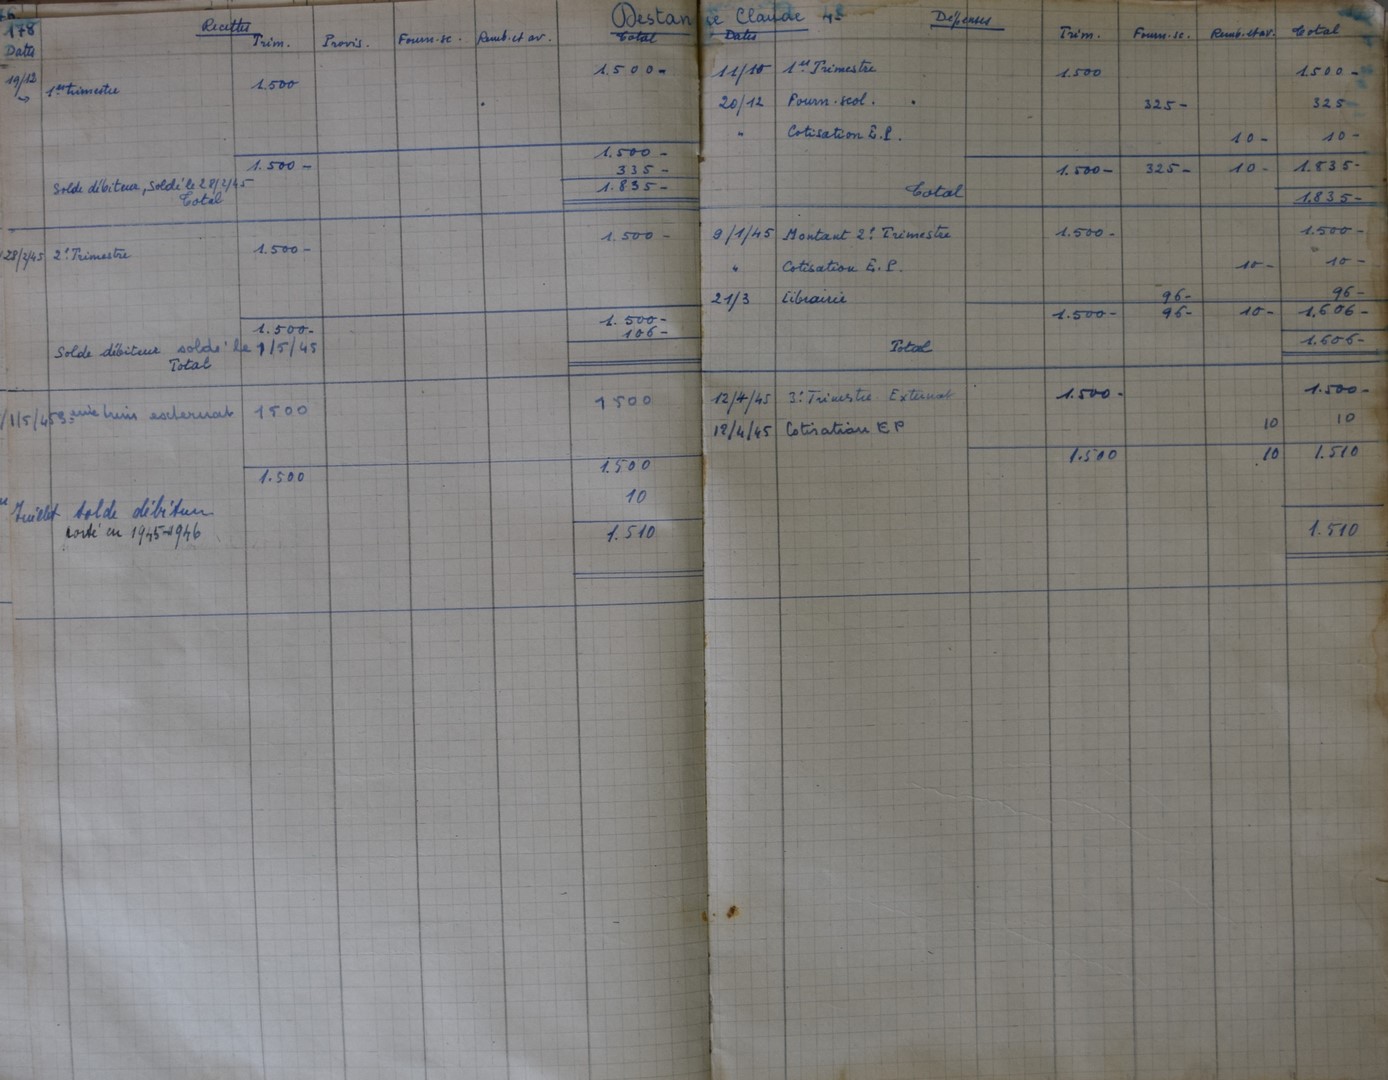 178 Recettes
Dates Trim. Provis. Fourn. sc. Remb. et av. Total
19/12 1er trimestre 1.500 1.500-
1.500- 1.500-
Solde débiteur, soldé le 28/2/45 335-
Total 1.835-
28/2/45 2e Trimestre 1.500- 1.500-
1.500- 1.500-
106-
Solde débiteur soldé le 1/5/45
Total
1/5/45 3eme trim externat 1500 1500
1.500 1.500
Juillet solde débiteur 10
porté en 1945-1946 1.510
Claude 4e Dépenses
Dates Trim. Fourn. sc. Remb. et av. Total
11/10 1er Trimestre 1.500 1.500-
20/12 Fourn. scol. 325- 325
" Cotisation E.P. 10- 10-
1.500- 325- 10- 1.835-
Total 1.835-
9/1/45 Montant 2e Trimestre 1.500- 1.500-
" Cotisation E.P. 10- 10-
21/3 Librairie 96- 96-
1.500- 96- 10- 1.606-
Total 1.606-
12/4/45 3e Trimestre Externat 1.500- 1.500-
18/4/45 Cotisation EP 10 10
1.500 10 1.510
1.510